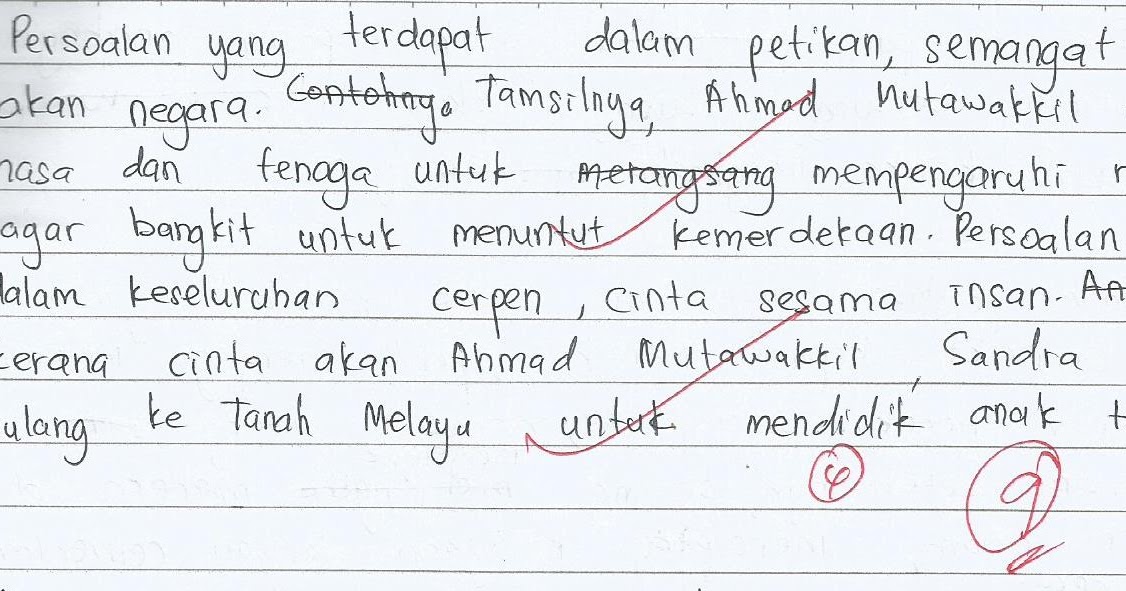 Persoalan yang terdapat dalam petikan, semangat
akan negara. Contohnya Tamsilnya, Ahmad Mutawakkil
masa dan tenaga untuk merangsang mempengaruhi
agar bangkit untuk menuntut kemerdekaan. Persoalan
dalam keseluruhan cerpen, cinta sesama insan. An
kerana cinta akan Ahmad Mutawakkil, Sandra
ulang ke Tanah Melayu untuk mendidik anak t
4
9